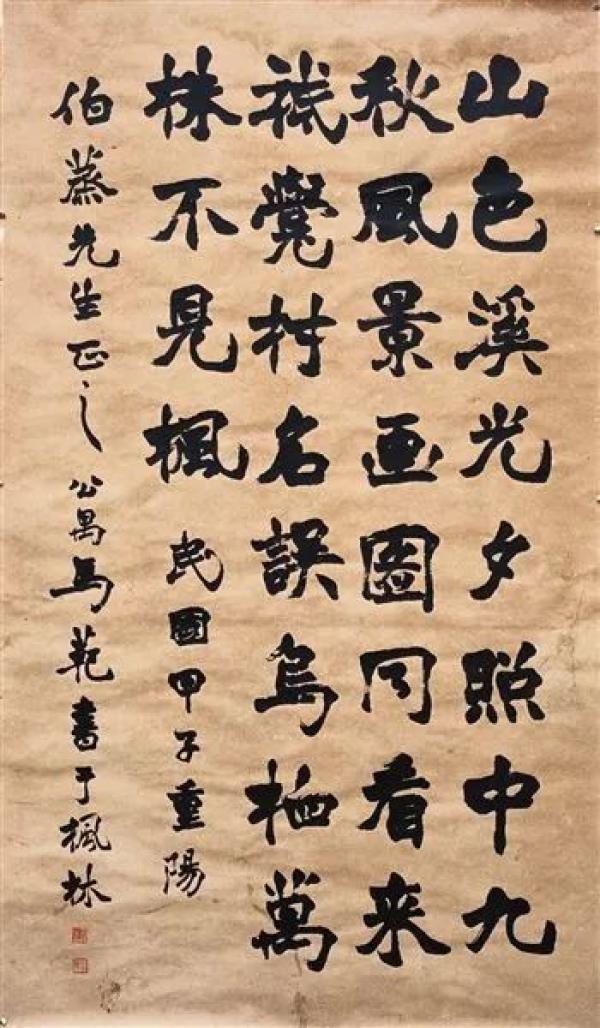 山色溪光夕照中九
秋風景画圖同看来
祗覺村名誤烏桕萬
株不見楓 民國甲子重陽
伯蒸先生正之 公禺馬範書于楓林